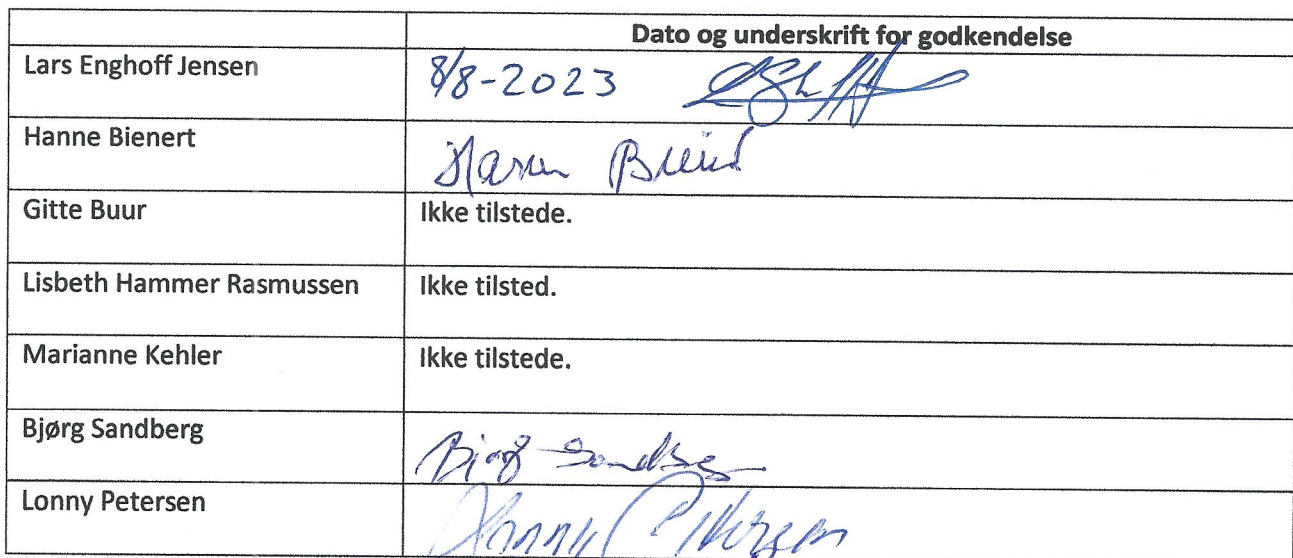 Dato og underskrift for godkendelse
Lars Enghoff Jensen 8/8-2023
Hanne Bienert
Gitte Buur Ikke tilstede.
Lisbeth Hammer Rasmussen Ikke tilsted.
Marianne Kehler Ikke tilstede.
Bjørg Sandberg
Lonny Petersen